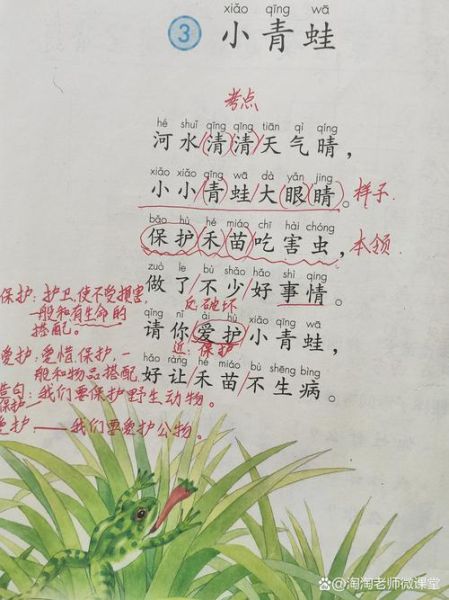 xiǎo qīng wā
3 小青蛙
考点
hé shuǐ qīng qīng tiān qì qíng
河水清清天气晴，
xiǎo xiǎo qīng wā dà yǎn jing
小小青蛙大眼睛。样子
bǎo hù hé miáo chī hài chóng
保护禾苗吃害虫，本领
zuò le bù shǎo hǎo shì qing
做了不少好事情。
保护：护卫，使不受损害，
反：破坏
一般和有生命的
搭配。
qǐng nǐ ài hù xiǎo qīng wā
请你爱护小青蛙，
近：保护
爱护：爱惜保护，一
般和物品搭配
hǎo ràng hé miáo bù shēng bìng
好让禾苗不生病。
造句：我们要保护野生动物。
保护
爱护——我们要爱护公物。
@淘淘老师微课堂